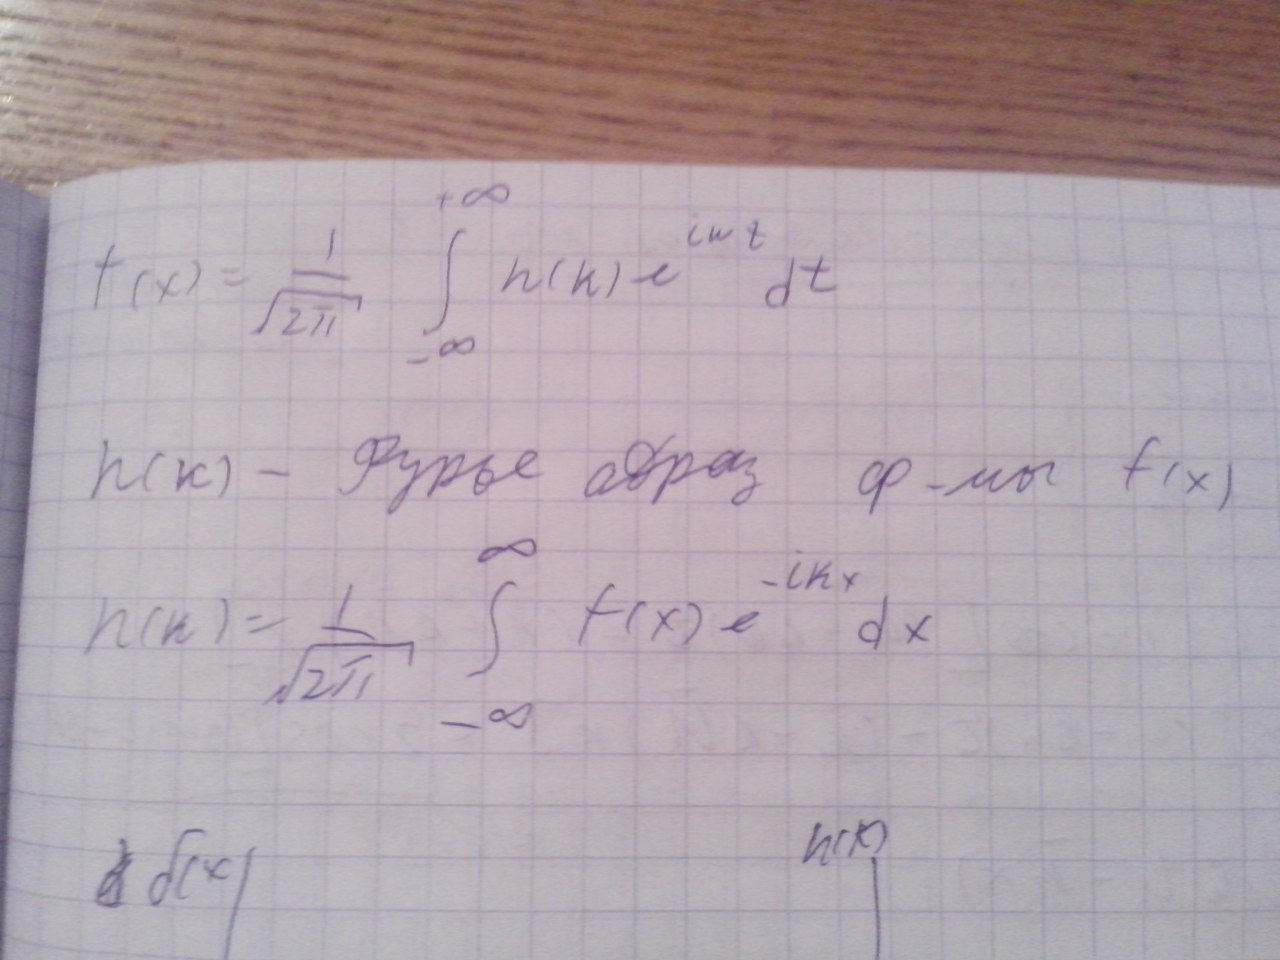 f(x) = 1/√2π ∫_{-∞}^{+∞} h(k) e^{iкt} dt
h(k) – Фурье образ ф-ии f(x)
h(k) = 1/√2π ∫_{-∞}^{∞} f(x) e^{-ikx} dx
δ(x) h(k)